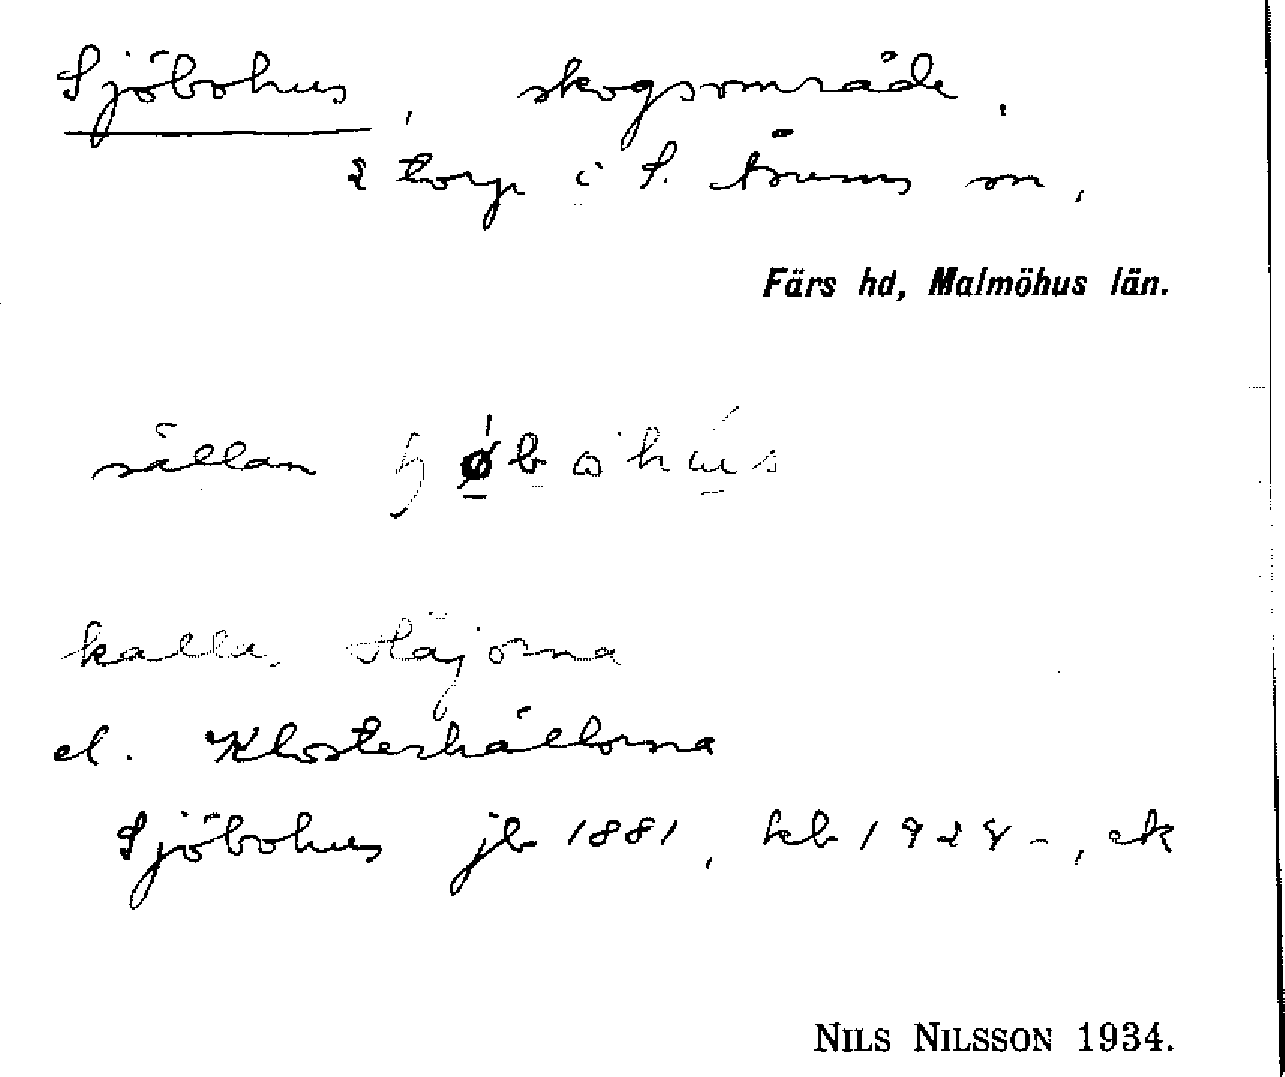 Sjöbohus, skogsområde,
2 torp i S. Åsums sn,
Färs hd, Malmöhus län.
sällan
kalla. Häjorna
el. Klosterhällorna
Sjöbohus jb 1881, kb 1928-, ek
NILS NILSSON 1934.